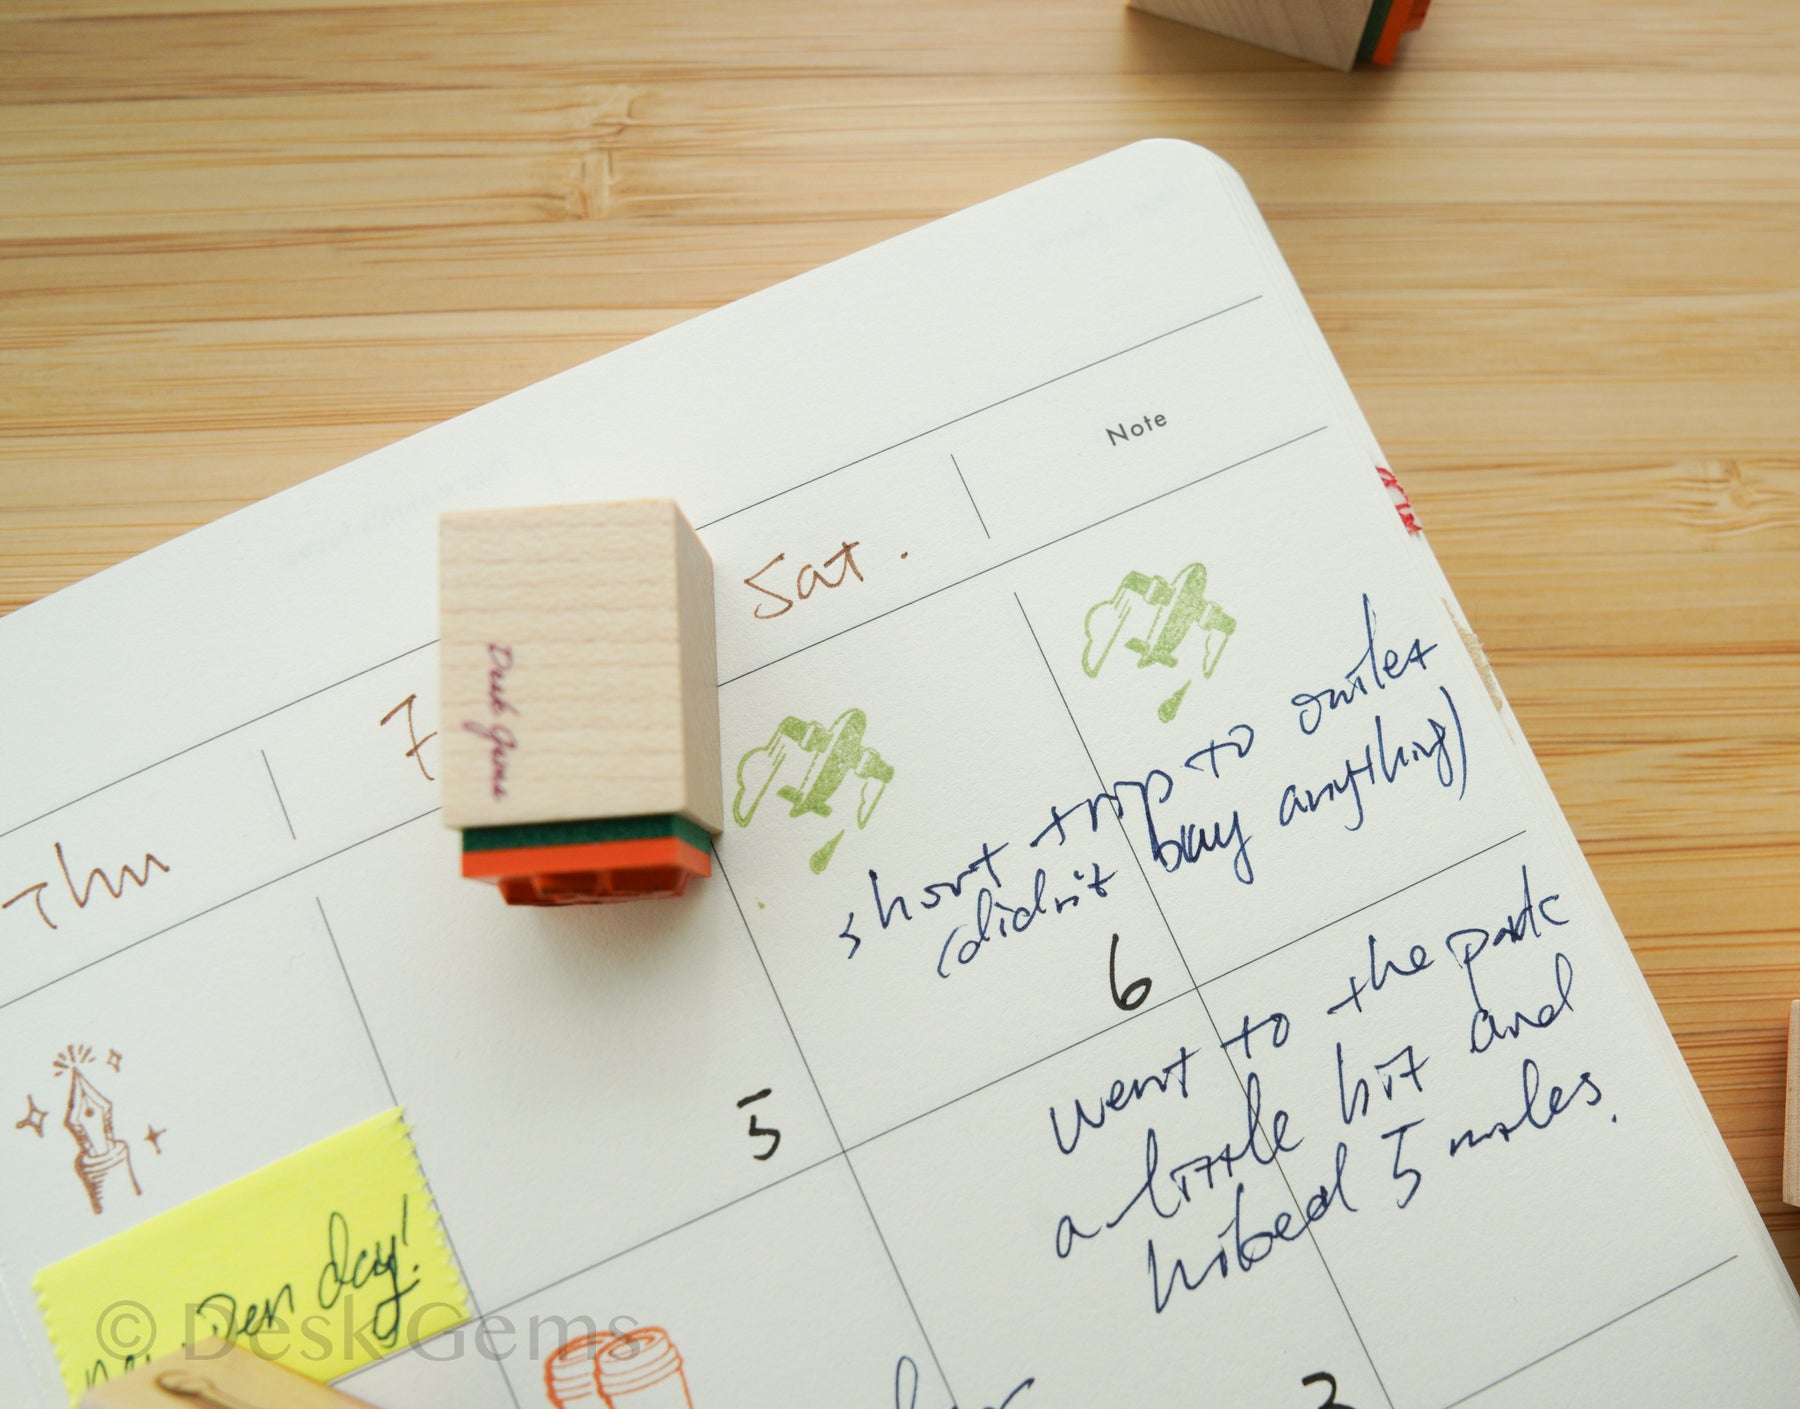 Note
Sat.
Thu
Desk Gems
short trip to outlet
(didn't buy anything)
6
5
went to the park
a little bit and
hiked 5 miles.
Pen day!
© Desk Gems